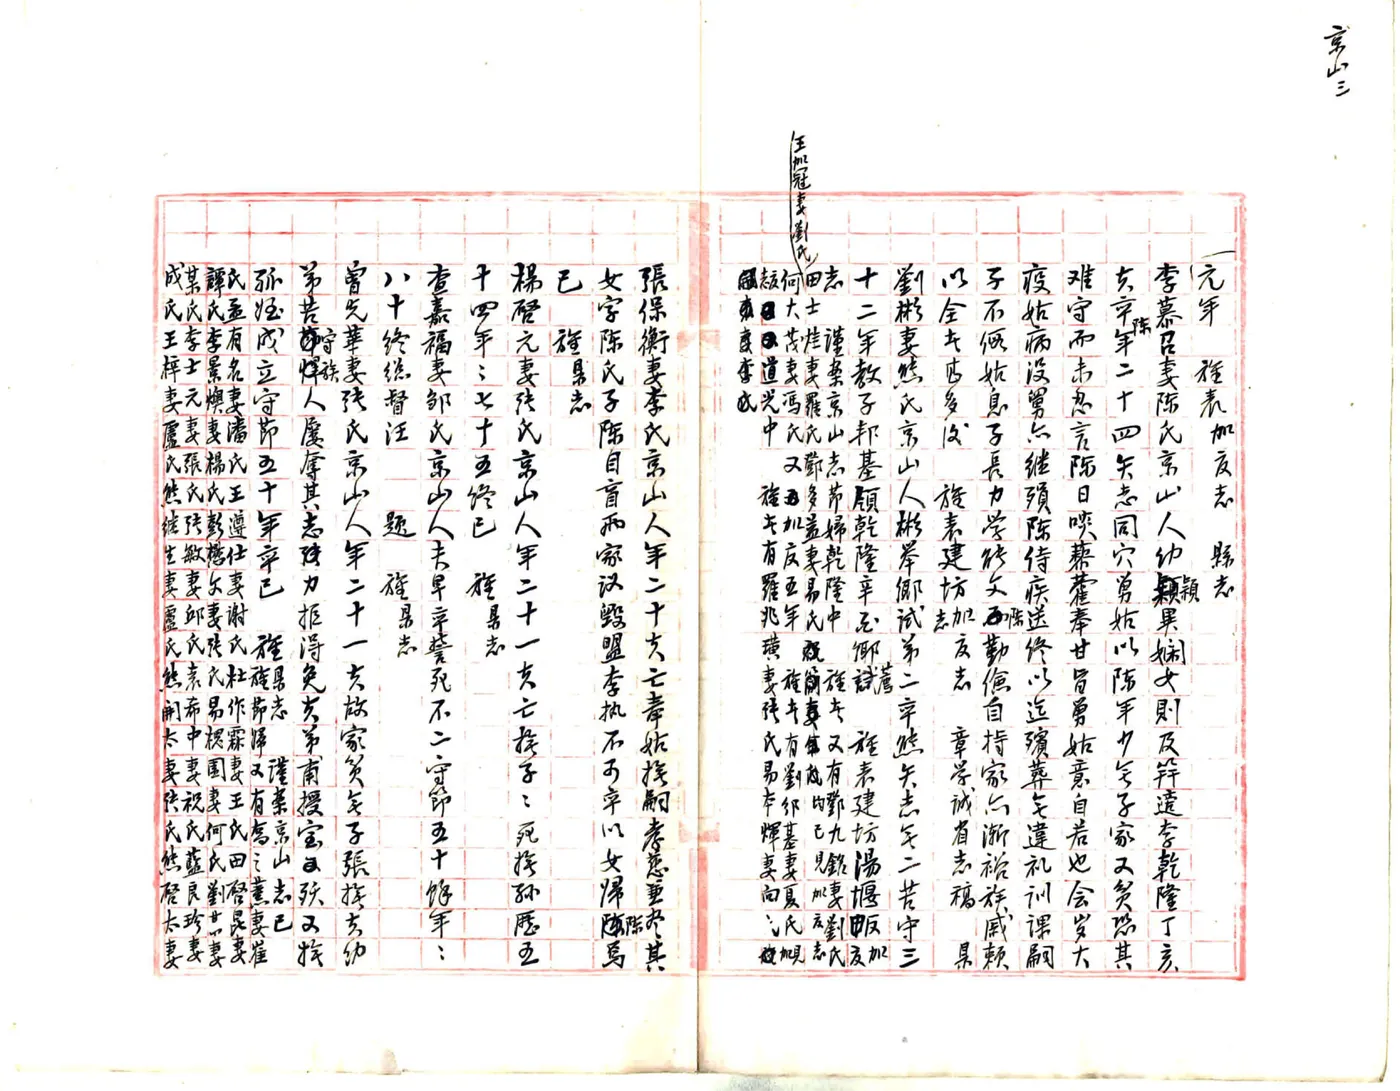 京山三
元年 旌表加度志 縣志
李慕召妻陳氏京山人幼穎異嫻女則及笄適李乾隆丁亥
夫卒陳年二十四矢志同穴舅姑以陳年少無子家又貧恐其
难守而未忍言陈日啖藜藿奉甘旨舅姑意自若也会岁大
疫姑病没舅亦继殒陈侍疾送终以迄殯葬無違礼訓課嗣
子不徇姑息子長力学能文陈勤儉自持家亦漸裕族戚頼
以全者甚多没 旌表建坊加度志 章学誠省志稿 県
志
劉彬妻熊氏京山人彬举鄉試第二卒熊矢志無二苦守三
十二年教子邦基領乾隆辛酉鄉薦 旌表建坊湯堰畈加度
志 謹案京山志節婦乾隆中 旌者又有鄧九銘妻劉氏
田士煃妻羅氏鄧多益妻易氏 均已見加度志
王加冠妻劉氏
何大茂妻馮氏又加度五年 旌者有劉邻基妻夏氏見加
度志道光中 旌者有羅兆璜妻張氏易本輝妻向氏
張保衡妻李氏京山人年二十夫亡奉姑撫嗣孝慈兼尽其
女字陈氏子陈自盲两家议毁盟李执不可卒以女帰陈焉
已 旌県志
楊啓元妻张氏京山人年二十一夫亡撫子子死撫孙歷五
十四年年七十五終已 旌県志
查嘉福妻邹氏京山人夫早卒誓死不二守節五十馀年年
八十终总督汪 題 旌県志
曾先華妻张氏京山人年二十一夫故家贫無子張撫夫幼
弟苦守族人屡奪其志张力拒得免夫弟甫授室又殁又撫
孙姪成立守節五十年卒已 旌県志 謹案京山志已
旌節婦又有喬之薰妻崔
氏孟有名妻潘氏王遵仕妻谢氏杜作霖妻王氏田啓昆妻
譚氏李景燠妻楊氏彭懋文妻张氏易楔園妻何氏劉廿四妻
某氏李士元妻張氏张敏妻邱氏袁希中妻祝氏藍良玲妻
成氏王梓妻盧氏熊继生妻盧氏熊開太妻张氏熊啓太妻